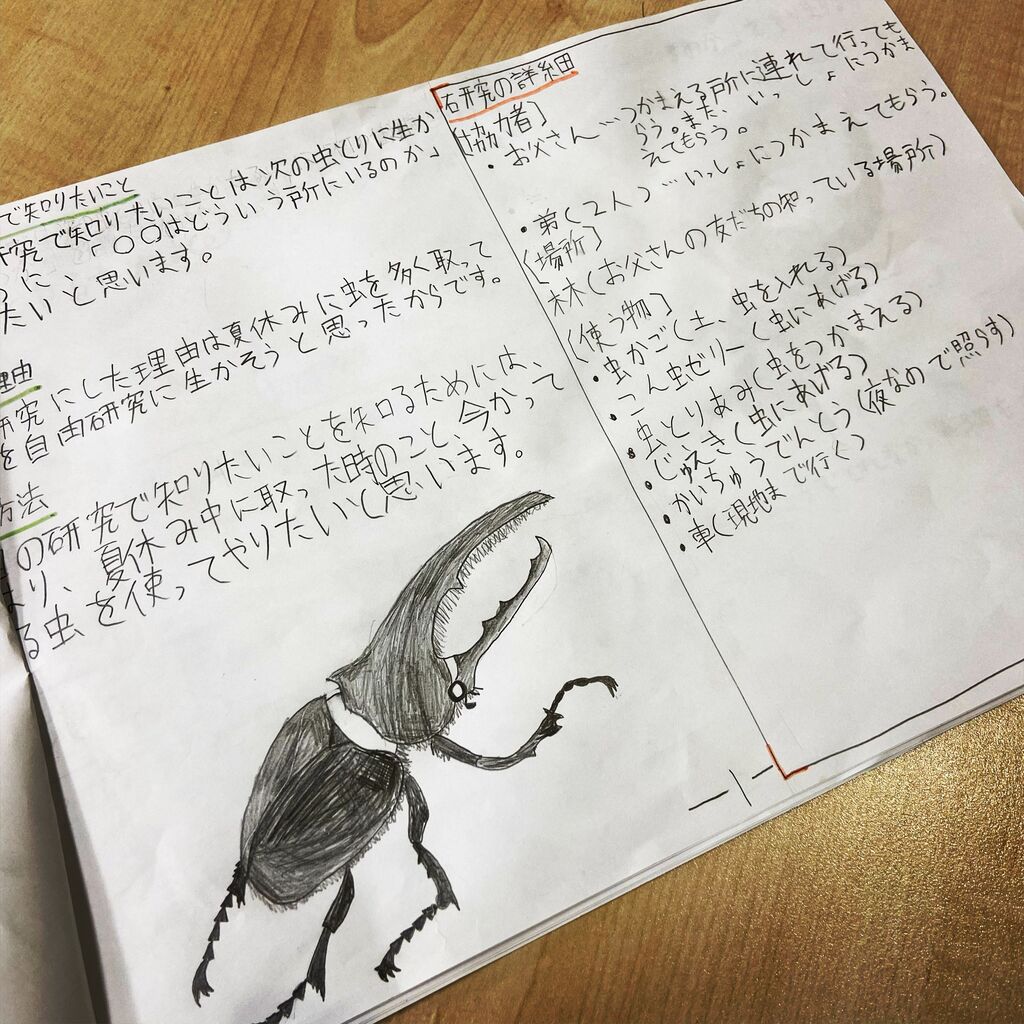 で知りたいこと
研究で知りたいことは次の虫とりに生か
うに、「〇〇はどういう所にいるのか」
たいと思います。
理由
研究にした理由は夏休みに虫を多く取って
を自由研究に生かそうと思ったからです。
方法
の研究で知りたいことを知るためには、
まり、夏休み中に取った時のこと、今かって
る虫を使ってやりたいと思います。
研究の詳細
[協力者]
・お父さん…つかまえる所に連れて行っても
らう。また、いっしょにつかま
えてもらう。
・弟(2人)…いっしょにつかまえてもらう。
[場所]
林(お父さんの友だちの知っている場所)
[使う物]
・虫かご(土、虫を入れる)
・こん虫ゼリー(虫にあげる)
・虫とりあみ(虫をつかまえる)
・じゅえき(虫にあげる)
・かいちゅうでんとう(夜なので照らす)
・車(現地まで行く)